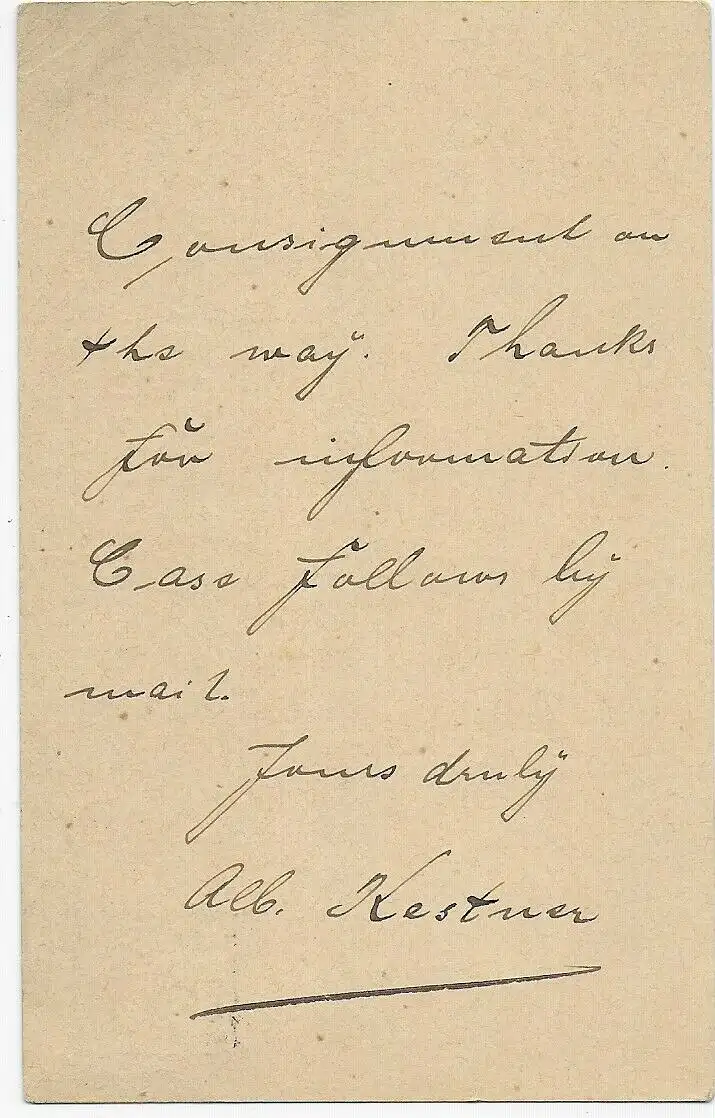 Consignement on
the way. Thanks
for information.
Case follows by
mail.
Yours druly
Alb. Kestner